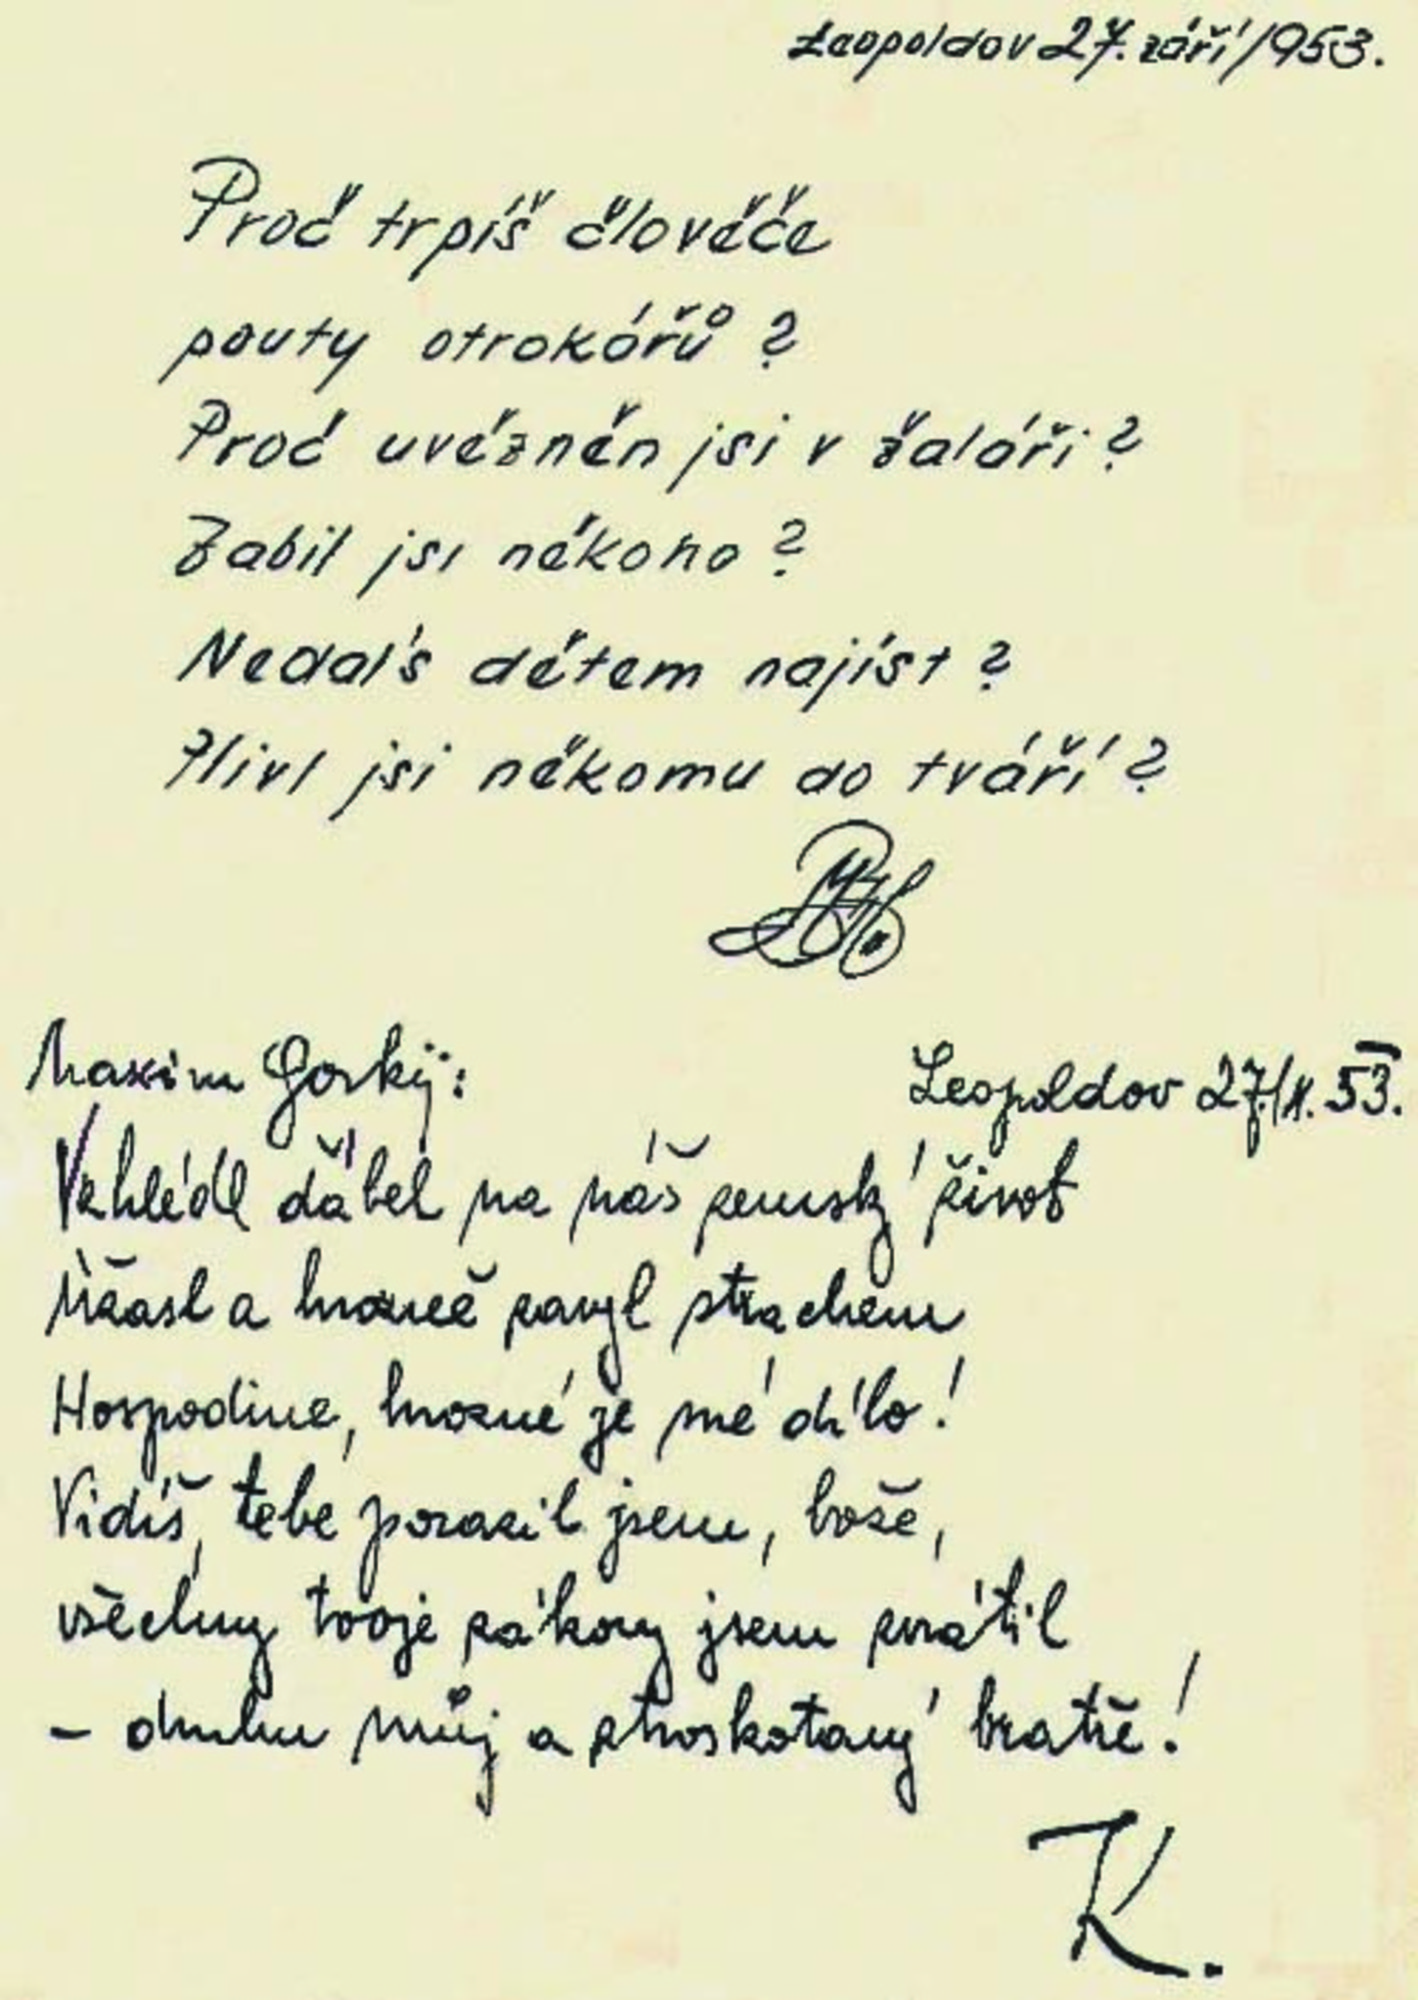 Leopoldov 27. září 1953.
Proč trpíš člověče
pouty otrokářů?
Proč uvězněn jsi v žaláři?
Zabil jsi někoho?
Nedal's dětem najíst?
Plivl jsi někomu do tváří?
Maxim Gorkij:
Leopoldov 27./X. 53.
Vzhlédl ďábel na náš zemský život
Užasl a hrozně zavyl strachem
Hospodine, hrozné je mé dílo!
Vidíš, tebe porazil jsem, bože,
všechny tvoje zákony jsem zvrátil
– druhu můj a ztroskotaný bratře!
K.